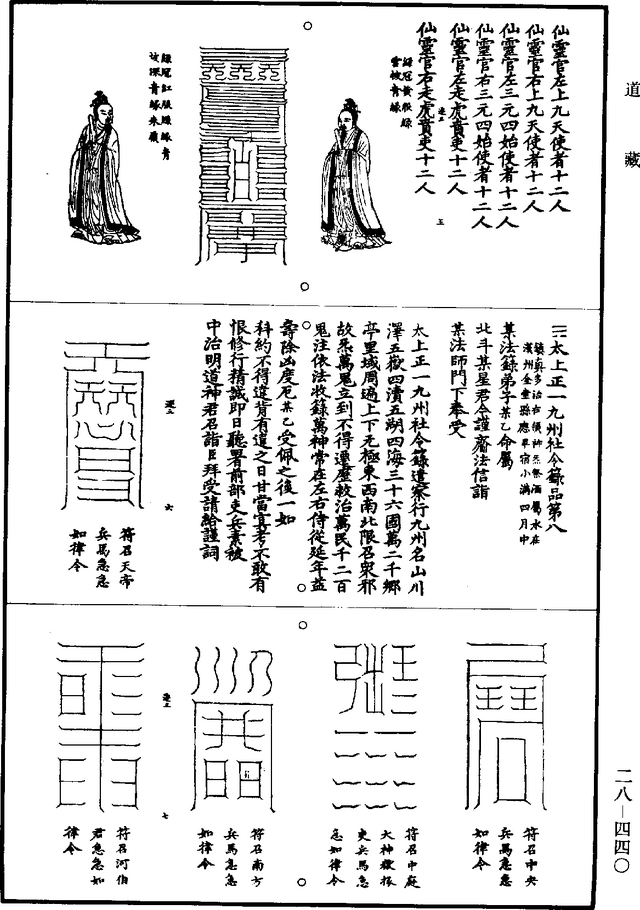 道藏
仙靈官左上九天使者十二人
仙靈官右上九天使者十二人
仙靈官左三元四始使者十二人
仙靈官右三元四始使者十二人
仙靈官左走虎賁吏十二人
仙靈官右走虎賁吏十二人
五
綠冠黃服綠
雲帔青緣
綠冠紅服綠緣青
帔深青緣朱履
太上正一九州社令籙品第八
某法籙弟子某乙命屬
北斗某星君今謹齎法信詣
某法師門下奉受
太上正一九州社令籙遣察行九州名山川
澤五嶽四瀆五湖四海三十六國萬二千鄉
亭里域周遍上下无極東西南北限召眾邪
故炁萬鬼立到不得遲歷救治萬民千二百
鬼注依法收錄萬神常在左右侍從延年益
壽除凶度厄某乙受佩之後一如
科約不得違背有違之日甘當冥考不敢有
恨修行精誠即日聽署前部吏兵素被
中治明道神君召詣臣拜受請給謹詞
六
符召天帝
兵馬急急
如律令
符召中央
兵馬急急
如律令
符召中庭
大神嶽根
吏兵馬急
急如律令
符召南方
兵馬急急
如律令
七
符召河伯
君急急如
律令
二八—四四〇